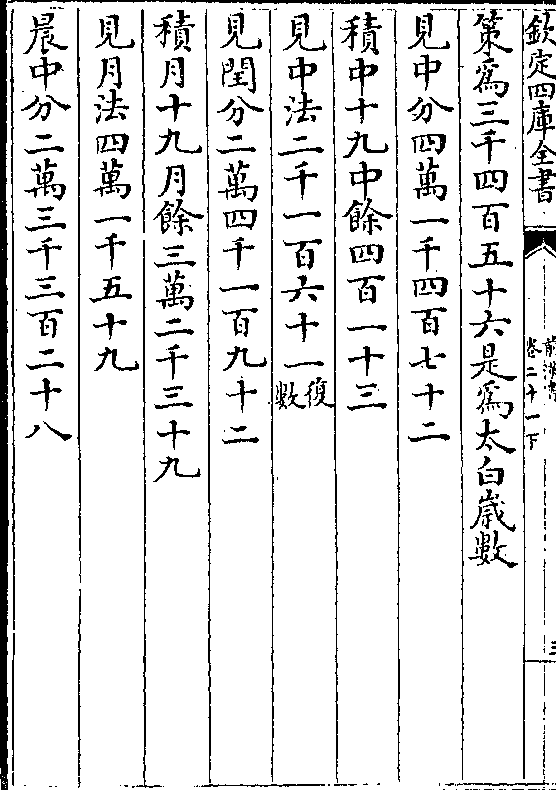 欽定四庫全書
卷二十一下
策爲三千四百五十六是爲太白歲數
見中分四萬一千四百七十二
積中十九中餘四百一十三
見中法二千一百六十一復數
見閏分二萬四千一百九十二
積月十九月餘三萬二千三十九
見月法四萬一千五十九
晨中分二萬三千三百二十八